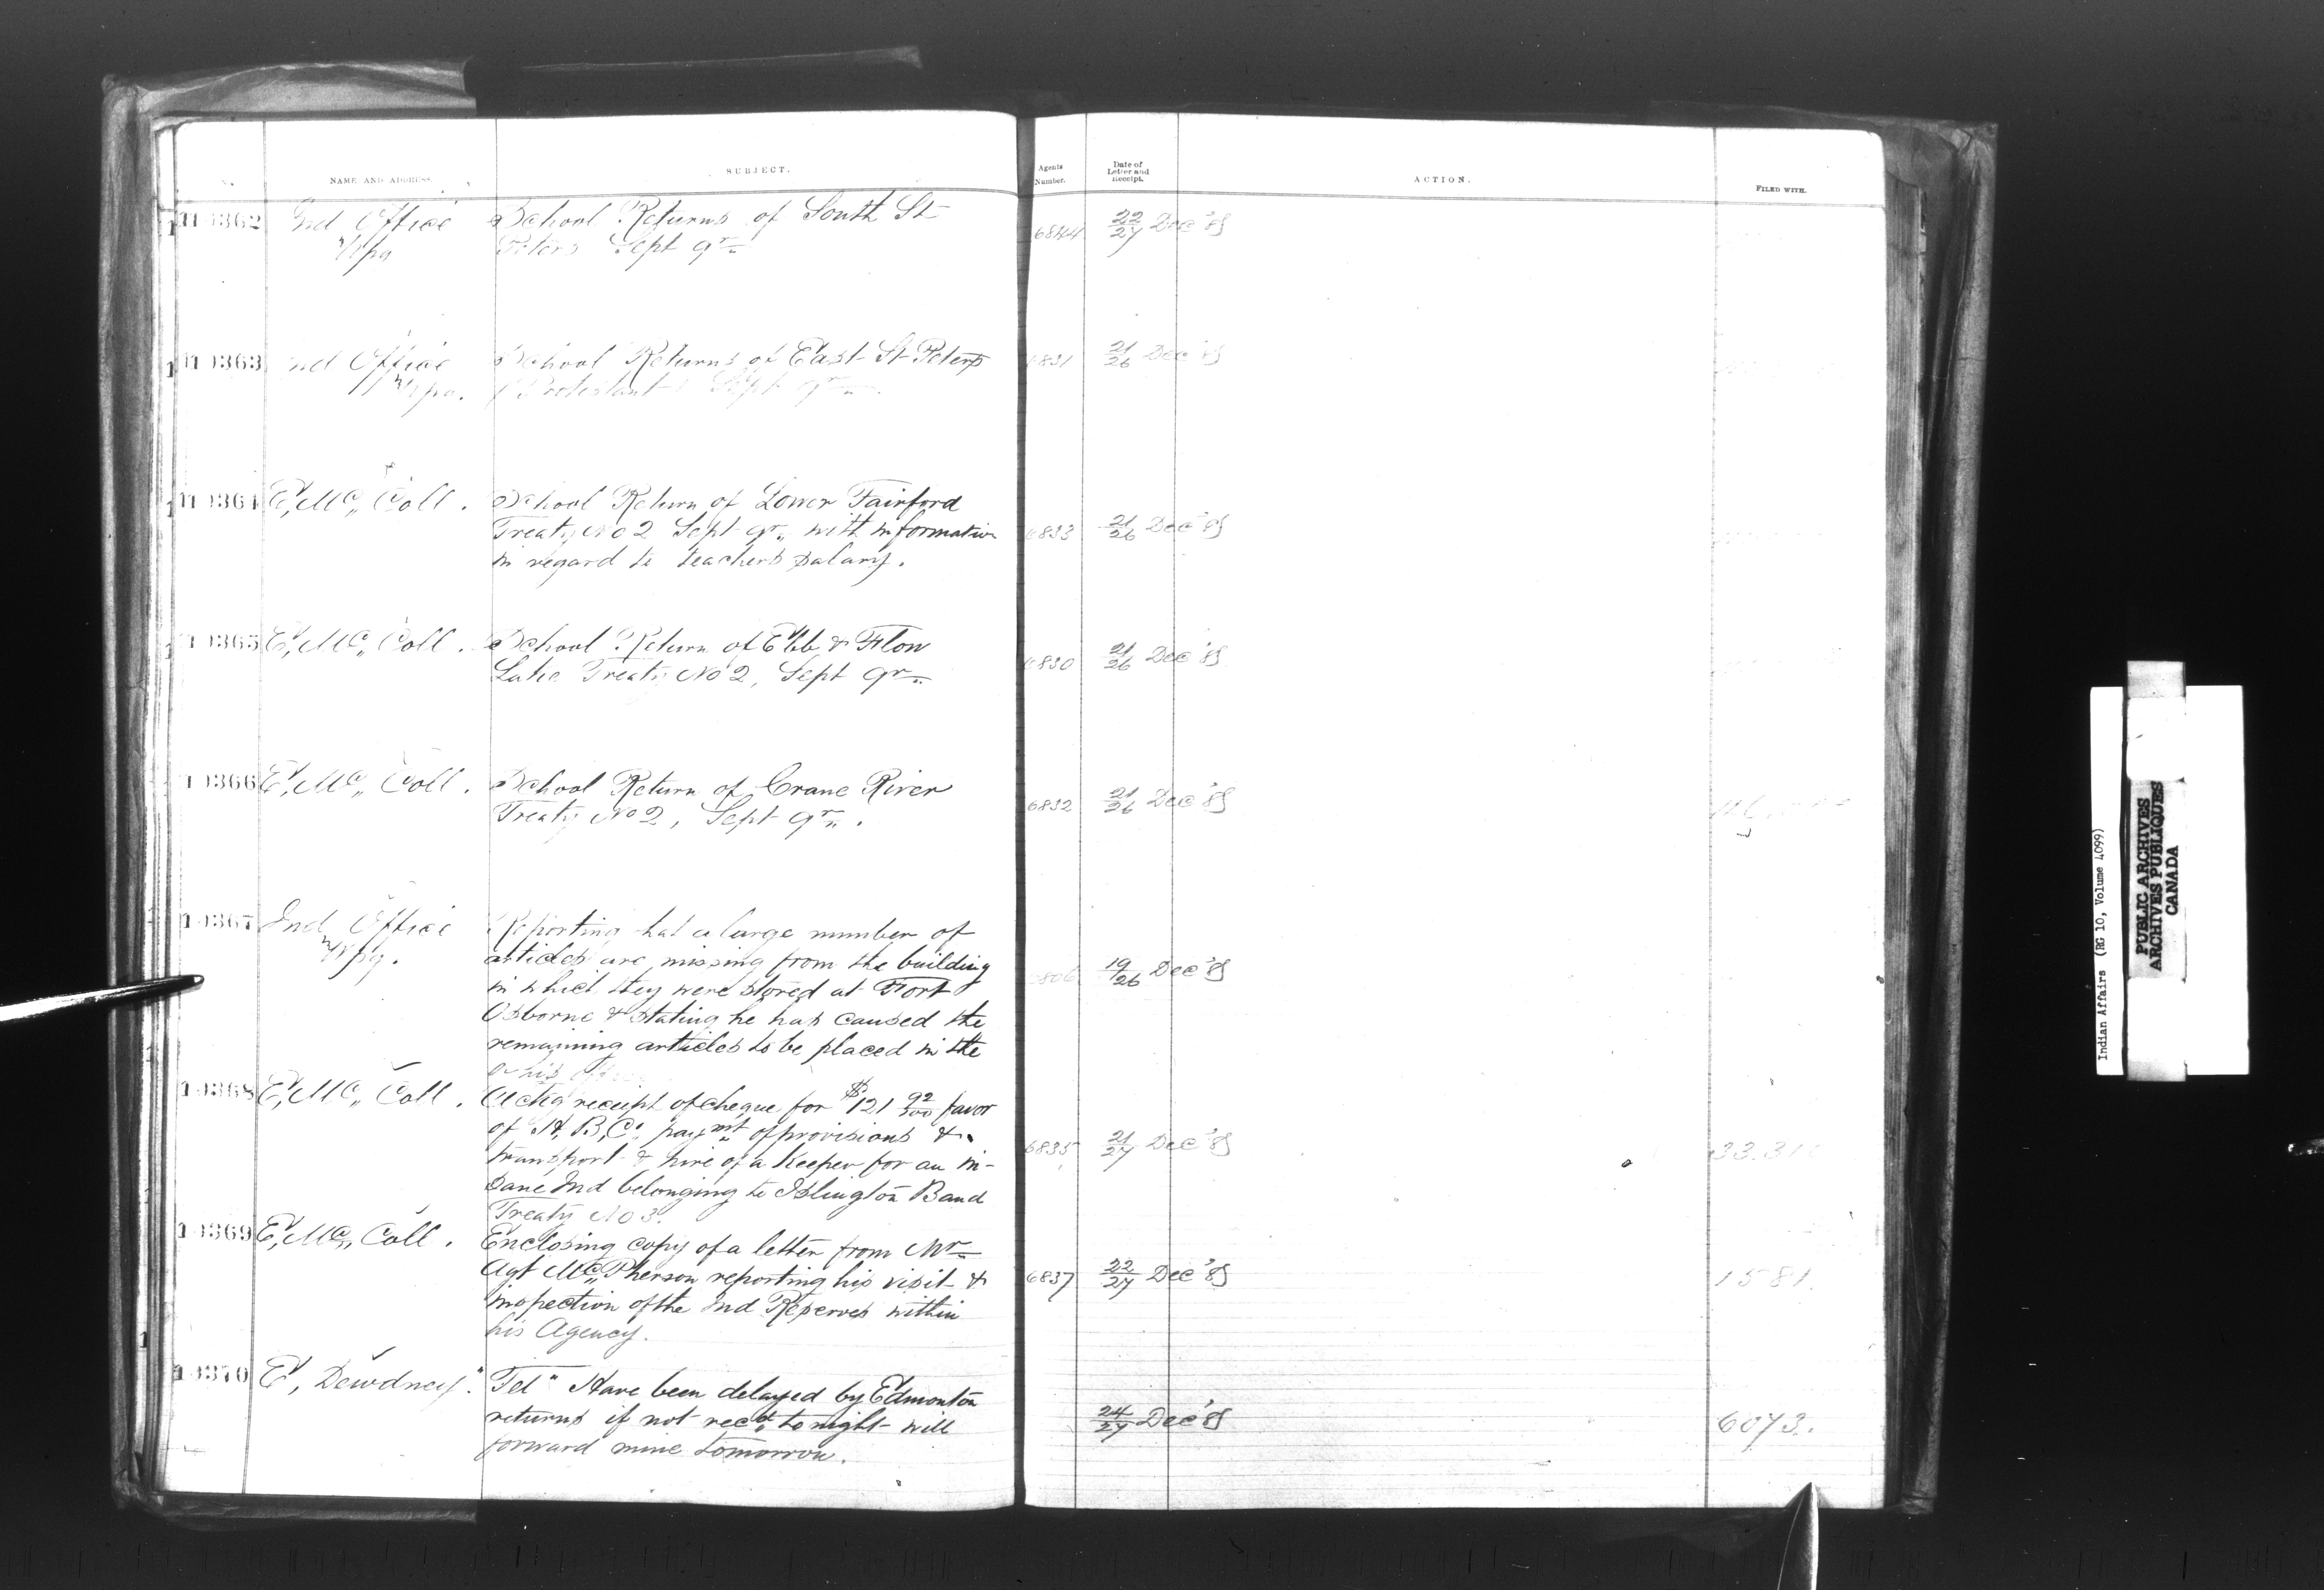 NAME AND ADDRESS.
SUBJECT.
Agents Number.
Date of Letter and Receipt.
ACTION.
FILED WITH.
Ind Office School Returns of South St
Wpg Peters Sept qr
6844 22/27 Dec '85
Ind Office School Returns of East St Peters
Wpg. (Protestant) Sept qr
6831 21/26 Dec '85
E, Mc, Coll. School Return of Lower Fairford
Treaty No 2 Sept qr, with information
in regard to teachers salary.
6833 21/26 Dec '85
E, Mc, Coll. School Return of Ebb & Flow
Lake Treaty No 2, Sept qr
6830 21/26 Dec '85
E, Mc, Coll. School Return of Crane River
Treaty No 2, Sept qr.
6832 21/26 Dec '85
Ind Office Reporting that a large number of
Wpg. articles are missing from the building
in which they were stored at Fort
Osborne & stating he has caused the
remaining articles to be placed in the
his
19/26 Dec '85
E, Mc, Coll. Ackg receipt of cheque for $121 92/100 favor
of H, B, Co paymt of provisions &
transport & hire of a Keeper for an in-
sane Ind belonging to Islington Band
Treaty No 3.
6835 21/27 Dec '85
E, Mc, Coll. Enclosing copy of a letter from Mr
Agt McPherson reporting his visit &
inspection of the Ind Reserves within
his Agency.
6837 22/27 Dec '85 1581.
E, Dewdney. "Tel" Have been delayed by Edmonton
returns if not recd to night will
forward mine tomorrow.
24/27 Dec '85 6073.
Indian Affairs (RG 10, Volume 4099)
PUBLIC ARCHIVES
ARCHIVES PUBLIQUES
CANADA